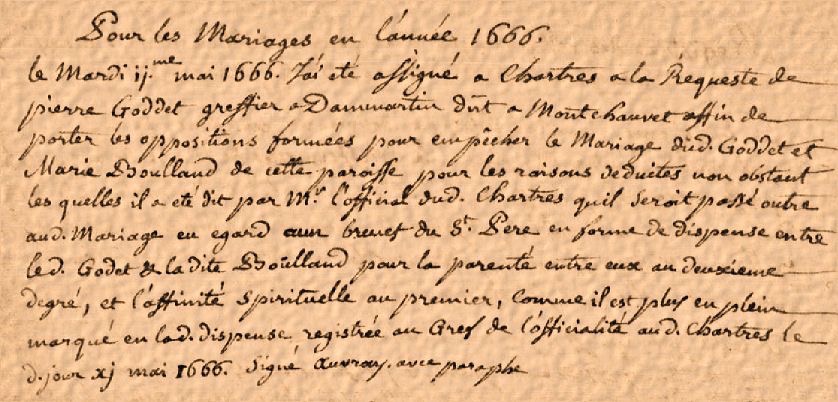 Pour les Mariages en l'année 1666.
le Mardi ij.me mai 1666. J'ai eté assigné a Chartres a la Requeste de
pierre Goddet greffier a Dammartin dnt a Montchauvet affin de
porter les oppositions formées pour empêcher le Mariage dud. Goddet et
Marie Boulland de cette paroisse pour les raisons deduites non obstant
les quelles il a eté dit par Mr. l'official dud. Chartres quil seroit passé outre
aud. Mariage eu egard aun brevet du St. Pere en forme de dispense entre
led. Godet & la dite Boulland pour la parenté entre eux au deuxieme
degré, et l'affinité spirituelle au premier, comme il est plus en plein
marqué en lad. dispense registrée au Gref de l'officialité aud. Chartres le
d. jour xj mai 1666. Signé auvray. avec paraphe